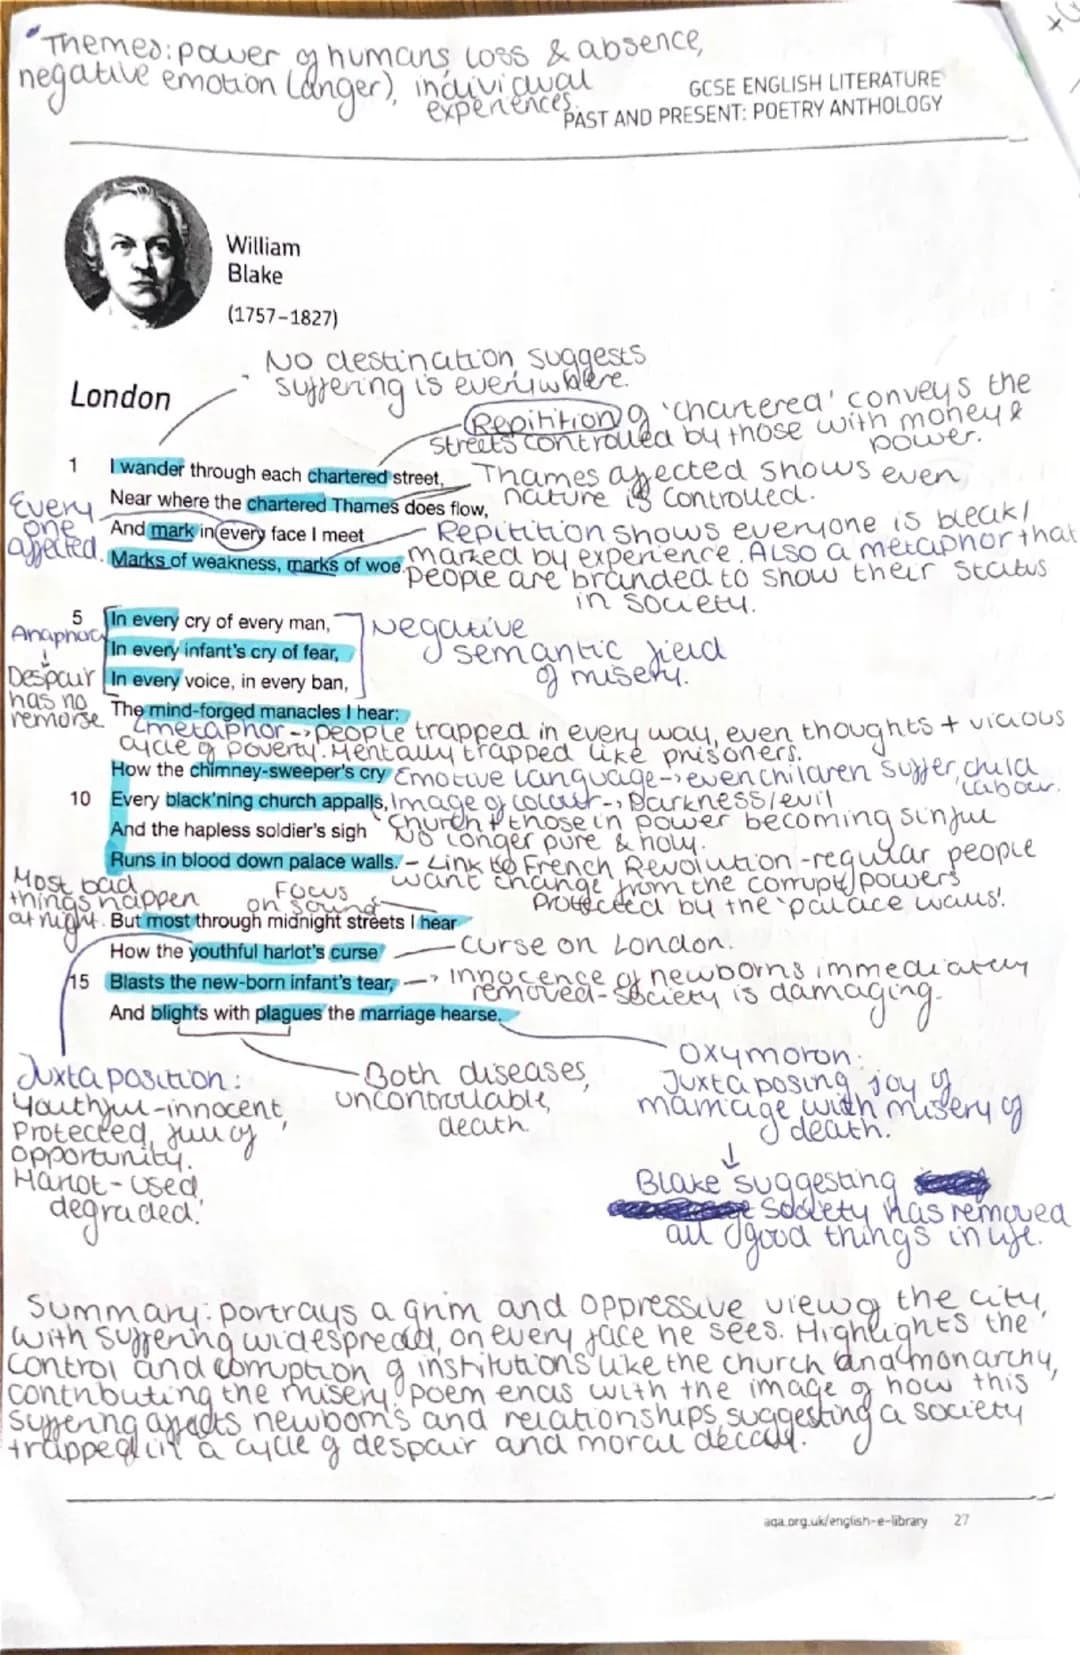 "Themes: power of humans, loss & absence,
negative emotion (anger), individual
experiences.
GCSE ENGLISH LITERATURE
PAST AND PRESENT: POETRY ANTHOLOGY
William
Blake
(1757–1827)
No destination, suggests
suffering is everywhere.
London
Repitition of 'chartered' conveys the
streets controlled by those with money &
power.
1 I wander through each chartered street,
Thames affected shows even
Near where the chartered Thames does flow,
nature is controlled.
Every
one
affected.
And mark in every face I meet
Repitition shows everyone is bleak/
Marks of weakness, marks of woe.
marked by experience. Also a metaphor that
people are branded to show their status
in society.
5 In every cry of every man,
Anaphora
In every infant's cry of fear,
Negative
semantic field
of misery.
Despair
has no
remorse
In every voice, in every ban,
The mind-forged manacles I hear:
metaphor -> people trapped in every way, even thoughts + vicious
cycle of poverty. Mentally trapped like prisoners.
How the chimney-sweeper's cry
Emotive language -> even children suffer, child
labour.
10 Every black'ning church appalls,
Image of colour -> Darkness/evil
Church + those in power becoming sinful
And the hapless soldier's sigh
No longer pure & holy.
Runs in blood down palace walls.
- Link to French Revolution - regular people
want change from the corrupt powers
protected by the 'palace walls'.
Most bad
things happen
at night.
Focus
on sound
But most through midnight streets I hear
How the youthful harlot's curse
curse on London.
15 Blasts the new-born infant's tear,
-> Innocence of newborns immediately
removed - society is damaging.
And blights with plagues the marriage hearse.
Juxtaposition:
Youthful - innocent,
Protected, full of
opportunity.
Harlot - used,
degraded.
Both diseases,
uncontrollable,
death.
Oxymoron:
Juxtaposing joy of
marriage with misery of
death.
↓
Blake suggesting
society has removed
all good things in life.
Summary: portrays a grim and oppressive view of the city,
with suffering widespread, on every face he sees. Highlights the
control and corruption of institutions like the church and monarchy,
contributing the misery. Poem ends with the image of how this
suffering affects newborns and relationships, suggesting a society
trapped in a cycle of despair and moral decay.
aqa.org.uk/english-e-library 27